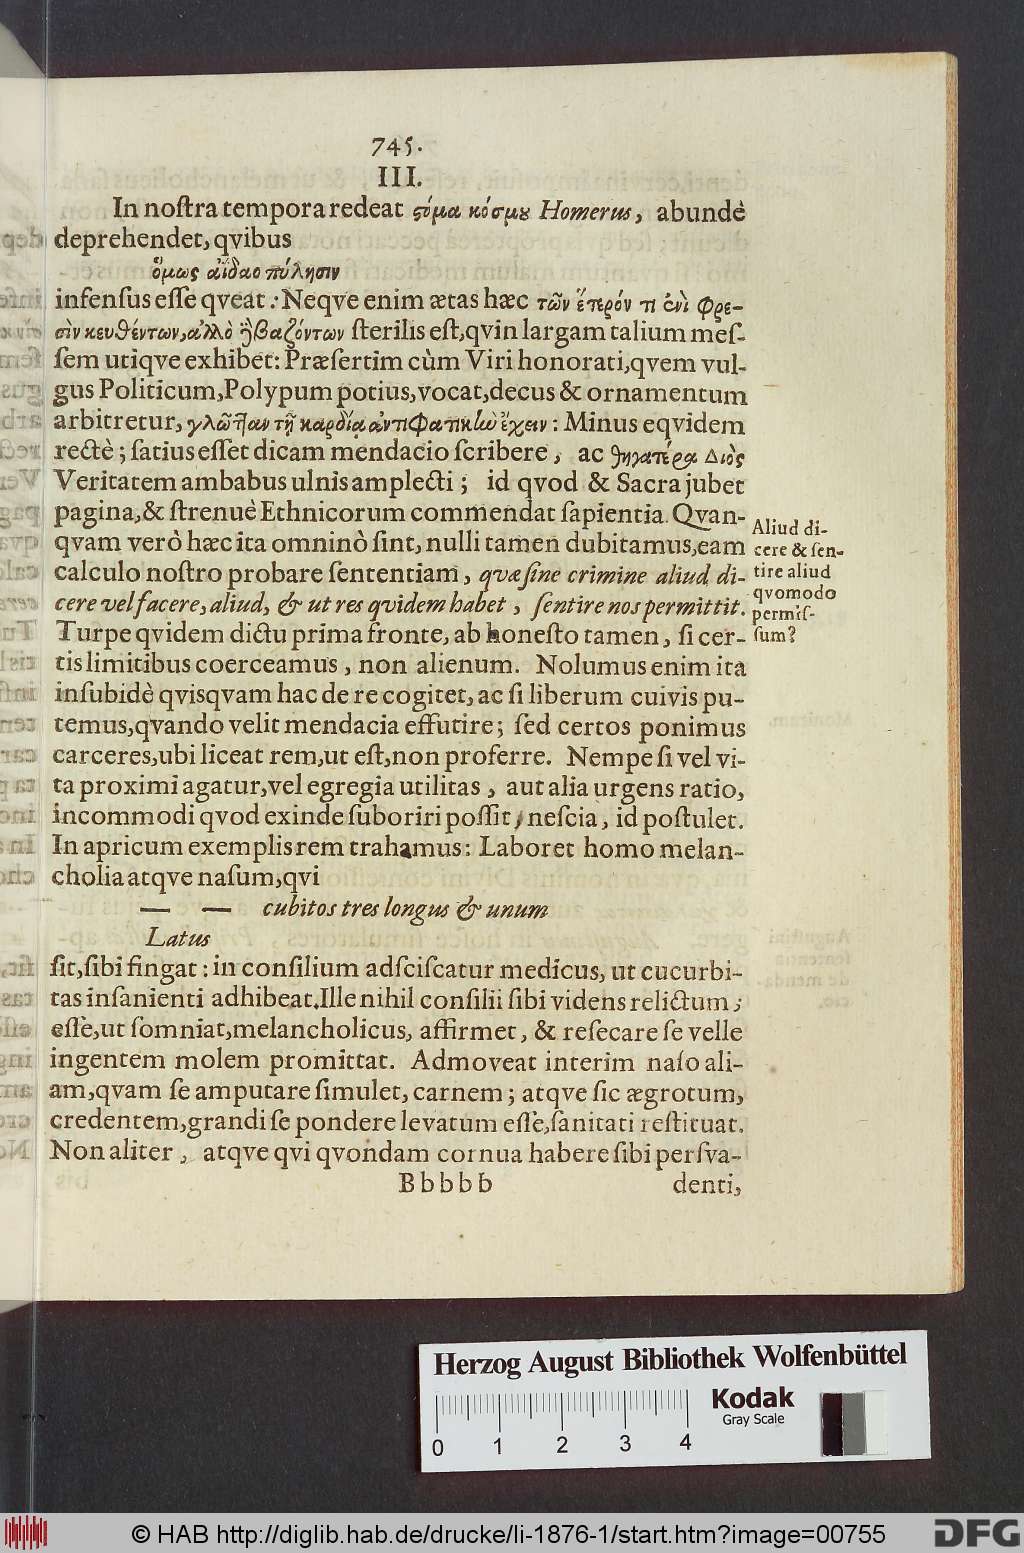 745.
III.
In noſtra tempora redeat ϛόμα κόσμȣ Homerus, abundè
deprehendet, qvibus
ὅμως ἀΐδαο πύλησιν
infenſus eſſe qveat: Neqve enim ætas hæc τῶν ἕτερόν τι ἐνὶ φρε-
σὶν κευθέντων, ἀλλὸ ἢ βαζόντων ſterilis eſt, qvin largam talium meſ-
ſem utiqve exhibet: Præſertim cùm Viri honorati, qvem vul-
gus Politicum, Polypum potius, vocat, decus & ornamentum
arbitretur, γλῶτ̃αν τῇ καρδίᾳ ἀντιφατικὼ ἔχειν: Minus eqvidem
rectè; ſatius eſſet dicam mendacio ſcribere, ac θηγατέρα Διὸς
Veritatem ambabus ulnis amplecti; id qvod & Sacra jubet
pagina, & ſtrenuè Ethnicorum commendat ſapientia. Qvan-
qvam verò hæc ita omninò ſint, nulli tamen dubitamus, eam
calculo noſtro probare ſententiam, qvæ ſine crimine aliud di-
cere vel facere, aliud, & ut res qvidem habet, ſentire nos permittit.
Turpe qvidem dictu prima fronte, ab honeſto tamen, ſi cer-
tis limitibus coerceamus, non alienum. Nolumus enim ita
inſubidè qvisqvam hac de re cogitet, ac ſi liberum cuivis pu-
temus, qvando velit mendacia effutire; ſed certos ponimus
carceres, ubi liceat rem, ut eſt, non proferre. Nempe ſi vel vi-
ta proximi agatur, vel egregia utilitas, aut alia urgens ratio,
incommodi qvod exinde ſuboriri poſſit, neſcia, id poſtulet.
In apricum exemplis rem trahamus: Laboret homo melan-
cholia atqve naſum, qvi
— — cubitos tres longus & unum
Latus
ſit, ſibi fingat: in conſilium adſciſcatur medicus, ut cucurbi-
tas inſanienti adhibeat. Ille nihil conſilii ſibi videns relictum,
eſſe, ut ſomniat, melancholicus, affirmet, & reſecare ſe velle
ingentem molem promittat. Admoveat interim naſo ali-
am, qvam ſe amputare ſimulet, carnem; atqve ſic ægrotum,
credentem, grandi ſe pondere levatum eſſe, ſanitati reſtituat.
Non aliter, atqve qvi qvondam cornua habere ſibi perſva-
Bbbbb denti,
Aliud di-
cere & ſen-
tire aliud
qvomodo
permiſ-
ſum?
Herzog August Bibliothek Wolfenbüttel
Kodak
Gray Scale
0 1 2 3 4
© HAB http://diglib.hab.de/drucke/li-1876-1/start.htm?image=00755
DFG